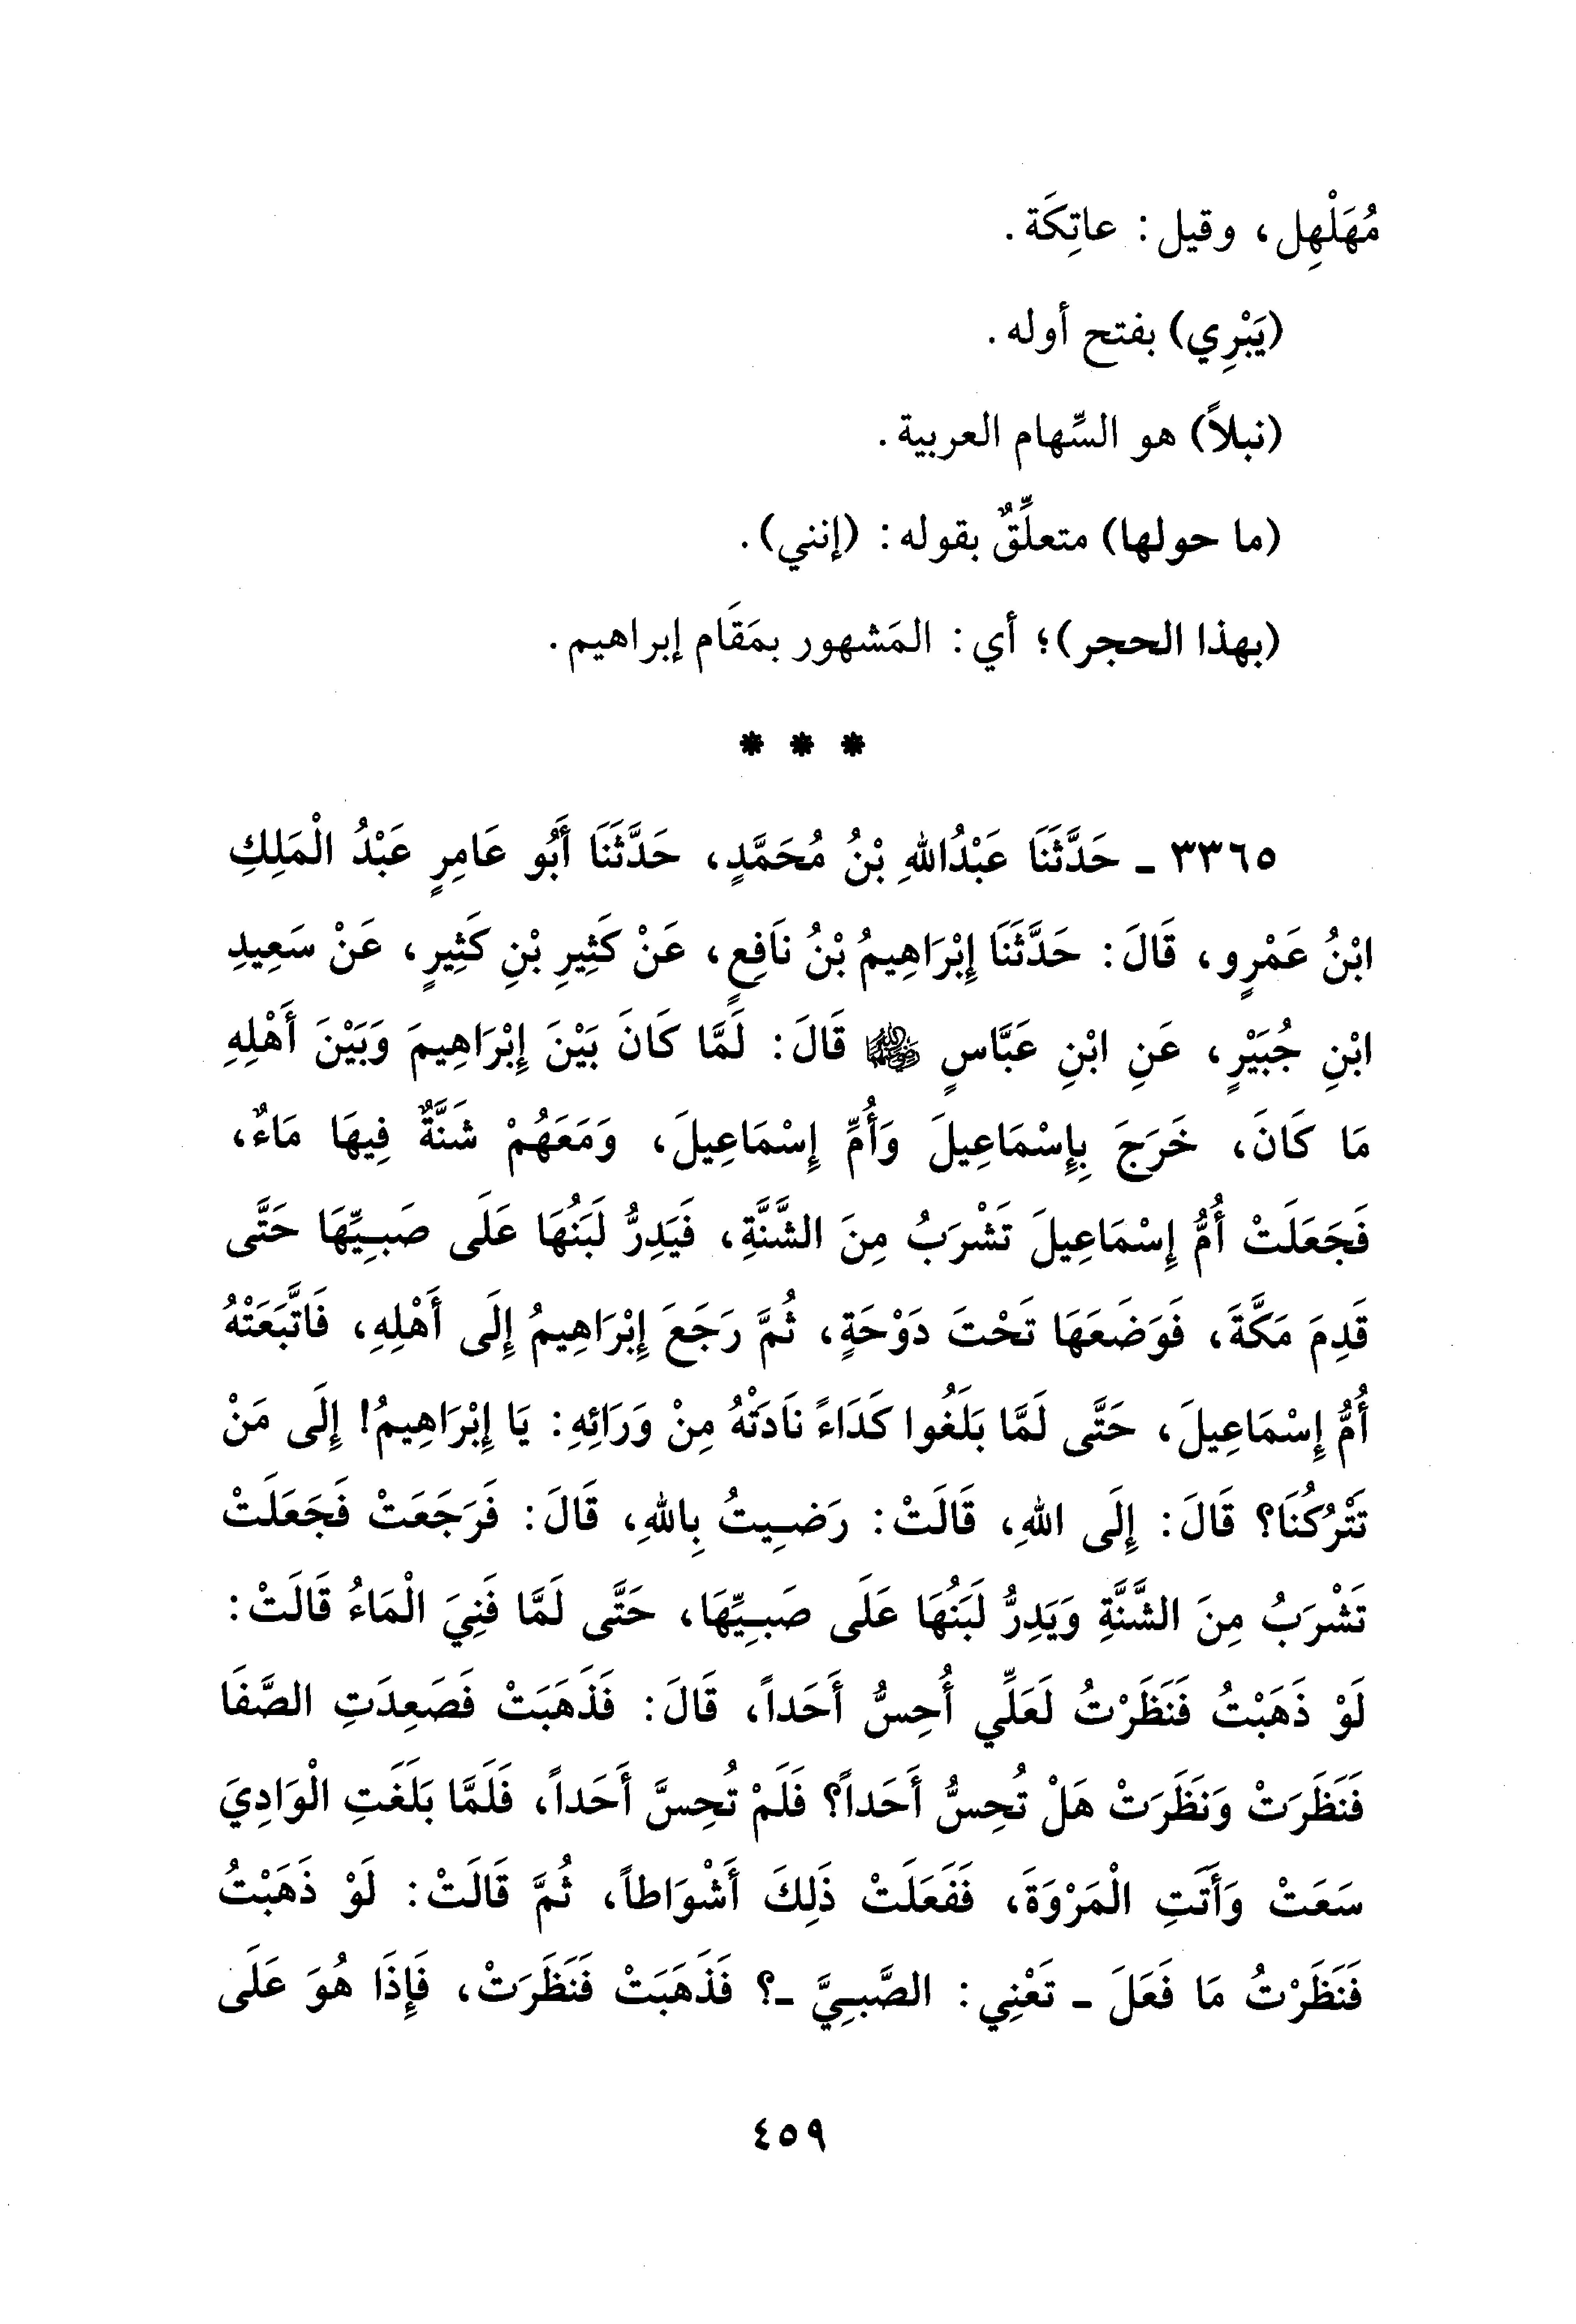 مُهَلْهِل، وقيل: عاتِكَة.
(يَبْرِي) بفتح أوله.
(نبلاً) هو السِّهام العربية.
(ما حولها) متعلِّقٌ بقوله: (إنني).
(بهذا الحجر)؛ أي: المَشهور بمَقَام إبراهيم.
* * *
٣٣٦٥ ـ حَدَّثَنَا عَبْدُاللهِ بْنُ مُحَمَّدٍ، حَدَّثَنَا أَبُو عَامِرٍ عَبْدُ الْمَلِكِ
ابْنُ عَمْرٍو، قَالَ: حَدَّثَنَا إِبْرَاهِيمُ بْنُ نَافِعٍ، عَنْ كَثِيرِ بْنِ كَثِيرٍ، عَنْ سَعِيدِ
ابْنِ جُبَيْرٍ، عَنِ ابْنِ عَبَّاسٍ ﵄ قَالَ: لَمَّا كَانَ بَيْنَ إِبْرَاهِيمَ وَبَيْنَ أَهْلِهِ
مَا كَانَ، خَرَجَ بِإِسْمَاعِيلَ وَأُمِّ إِسْمَاعِيلَ، وَمَعَهُمْ شَنَّةٌ فِيهَا مَاءٌ،
فَجَعَلَتْ أُمُّ إِسْمَاعِيلَ تَشْرَبُ مِنَ الشَّنَّةِ، فَيَدِرُّ لَبَنُهَا عَلَى صَبِيِّهَا حَتَّى
قَدِمَ مَكَّةَ، فَوَضَعَهَا تَحْتَ دَوْحَةٍ، ثُمَّ رَجَعَ إِبْرَاهِيمُ إِلَى أَهْلِهِ، فَاتَّبَعَتْهُ
أُمُّ إِسْمَاعِيلَ، حَتَّى لَمَّا بَلَغُوا كَدَاءً نَادَتْهُ مِنْ وَرَائِهِ: يَا إِبْرَاهِيمُ! إِلَى مَنْ
تَتْرُكُنَا؟ قَالَ: إِلَى اللهِ، قَالَتْ: رَضِيتُ بِاللهِ، قَالَ: فَرَجَعَتْ فَجَعَلَتْ
تَشْرَبُ مِنَ الشَّنَّةِ وَيَدِرُّ لَبَنُهَا عَلَى صَبِيِّهَا، حَتَّى لَمَّا فَنِيَ الْمَاءُ قَالَتْ:
لَوْ ذَهَبْتُ فَنَظَرْتُ لَعَلِّي أُحِسُّ أَحَداً، قَالَ: فَذَهَبَتْ فَصَعِدَتِ الصَّفَا
فَنَظَرَتْ وَنَظَرَتْ هَلْ تُحِسُّ أَحَداً؟ فَلَمْ تُحِسَّ أَحَداً، فَلَمَّا بَلَغَتِ الْوَادِيَ
سَعَتْ وَأَتَتِ الْمَرْوَةَ، فَفَعَلَتْ ذَلِكَ أَشْوَاطاً، ثُمَّ قَالَتْ: لَوْ ذَهَبْتُ
فَنَظَرْتُ مَا فَعَلَ ـ تَعْنِي: الصَّبِيَّ ـ؟ فَذَهَبَتْ فَنَظَرَتْ، فَإِذَا هُوَ عَلَى
٤٥٩